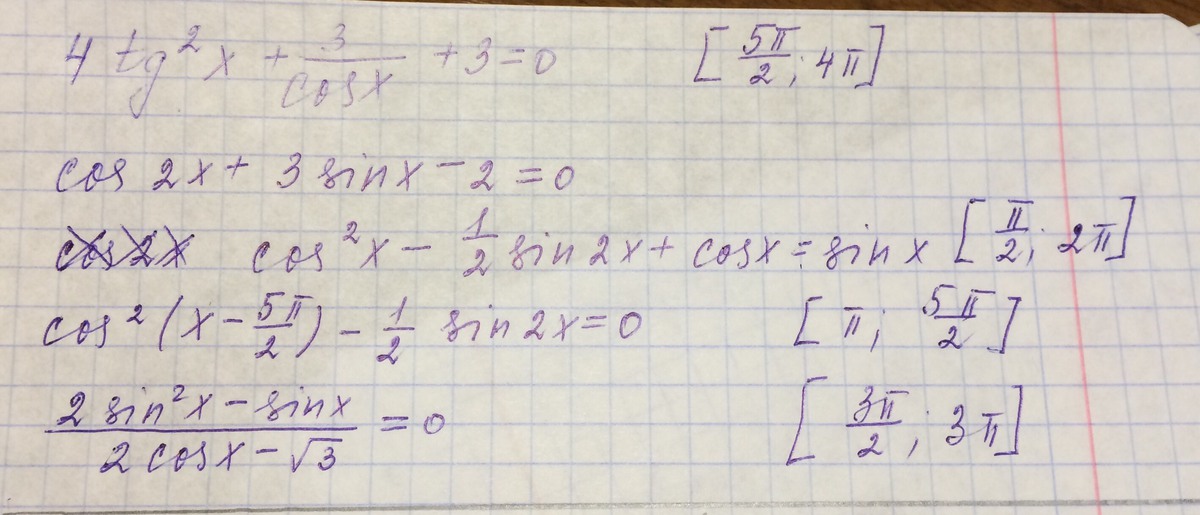 4 tg²x + 3/cosx + 3 = 0 [5π/2; 4π]
cos 2x + 3 sinx - 2 = 0
cos2x cos²x - 1/2 sin 2x + cosx = sinx [π/2; 2π]
cos² (x - 5π/2) - 1/2 sin 2x = 0 [π; 5π/2]
(2 sin²x - sinx)/(2 cosx - √3) = 0 [3π/2; 3π]